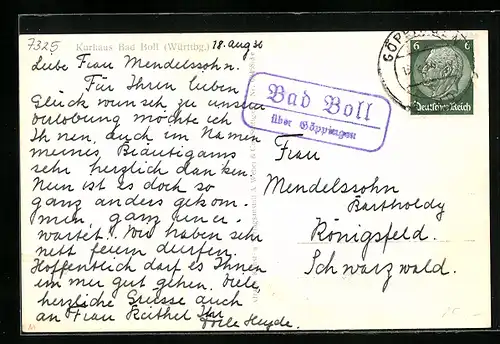 7325
Kurhaus Bad Boll (Württbg.)
18. Aug 36
Liebe Frau Mendelssohn.
Für Ihren lieben
Glückwunsch zu unserer
Verlobung möchte ich
Ihnen, auch im Namen
meines Bräutigams
sehr herzlich danken.
Nun ist es doch so
ganz anders gekom-
men, ganz uner-
wartet! Wir haben sehr
nett feiern dürfen.
Hoffentlich darf es Ihnen
immer gut gehen. Viele,
herzliche Grüsse auch
an Frau Käthe! Ihr
Bad Boll
über Göppingen
GÖPPINGEN
6 6
Deutsches Reich
Frau
Mendelssohn
Bartholdy
Königsfeld.
Schwarzwald.